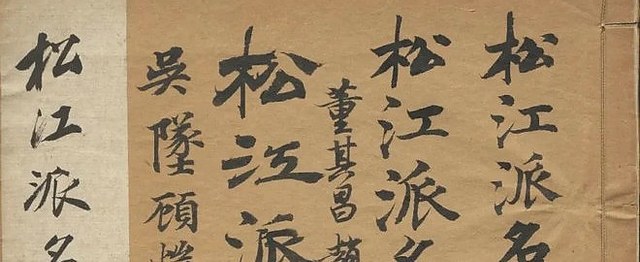 松江派名
松江派名
董其昌趙
松江派
吳墜顧
松江派名